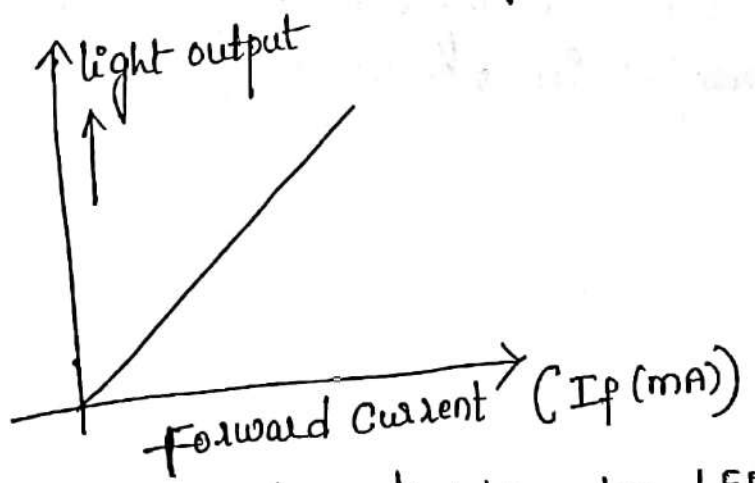 light output
Forward Current (If (mA))